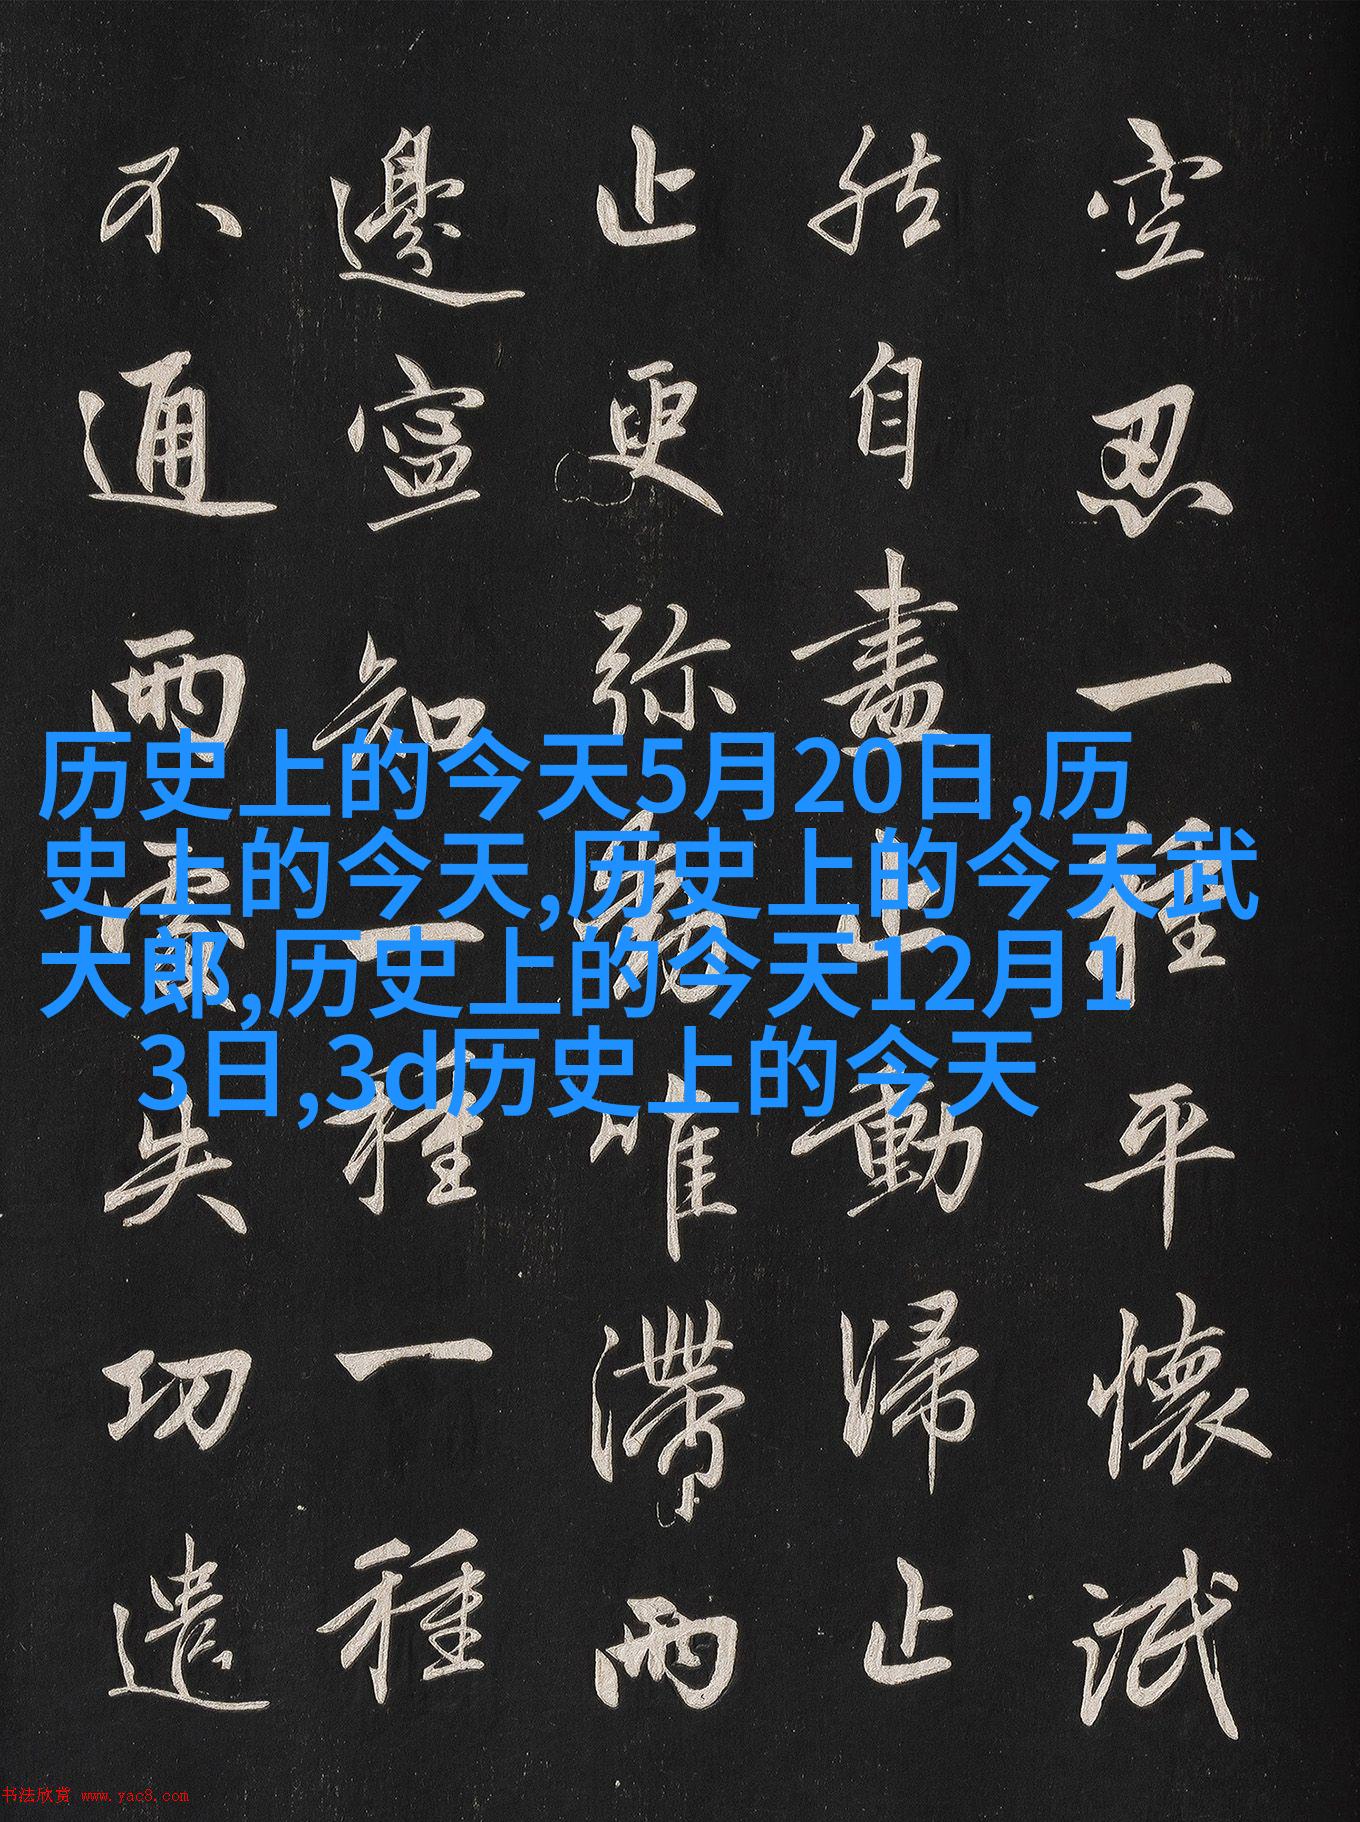 空忍一種平懷泯
然自盡止動歸止
止更弥動唯滯兩
邊寧知一種一種
不通兩處失功遣
历史上的今天5月20日,历
史上的今天,历史上的今天武
大郎,历史上的今天12月1
3日,3d历史上的今天
书法欣赏 www.yac8.com